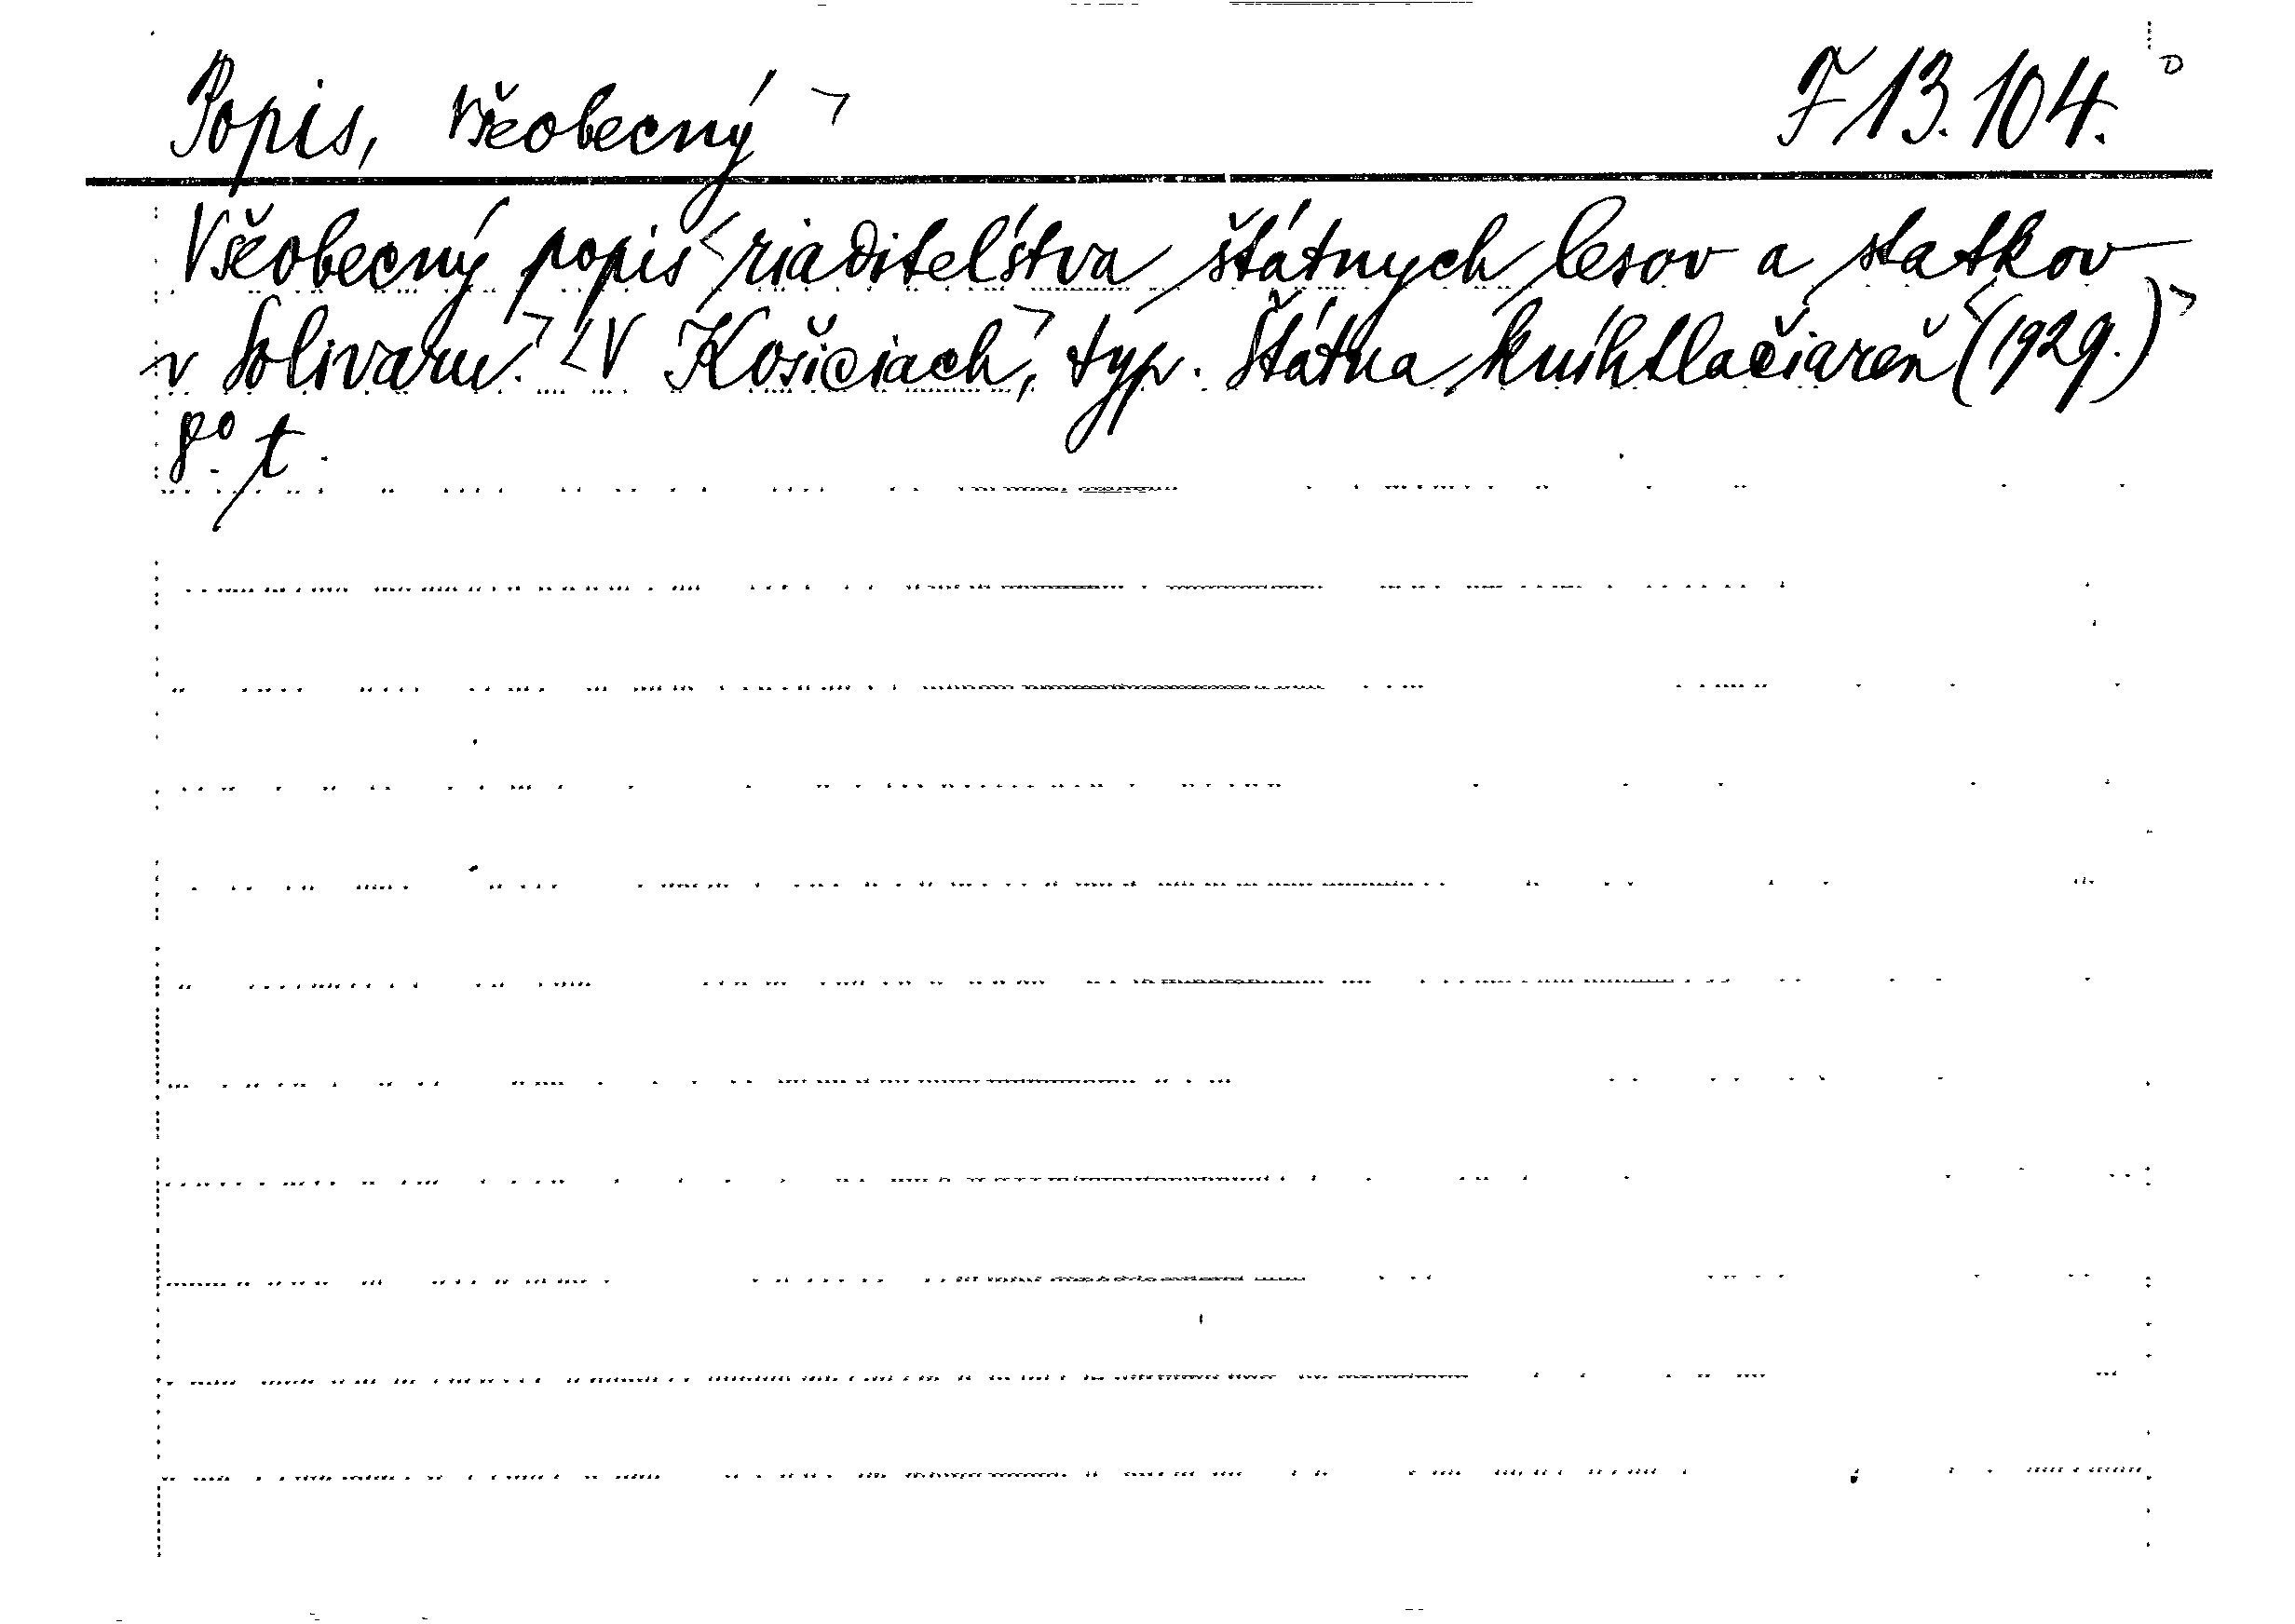 Popis, všeobecný ¬ F 13.104.
Všeobecný popis riaditeľstva štátnych lesov a statkov
v Solivaru. V Košiciach, typ. Štátna kníhtlačiareň (1929.)
8° t.